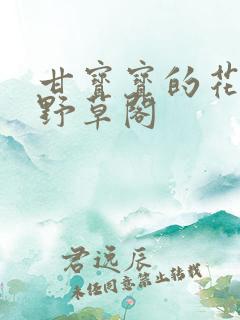 甘寳寳的花
野草閣
君远辰
未经同意禁止转载